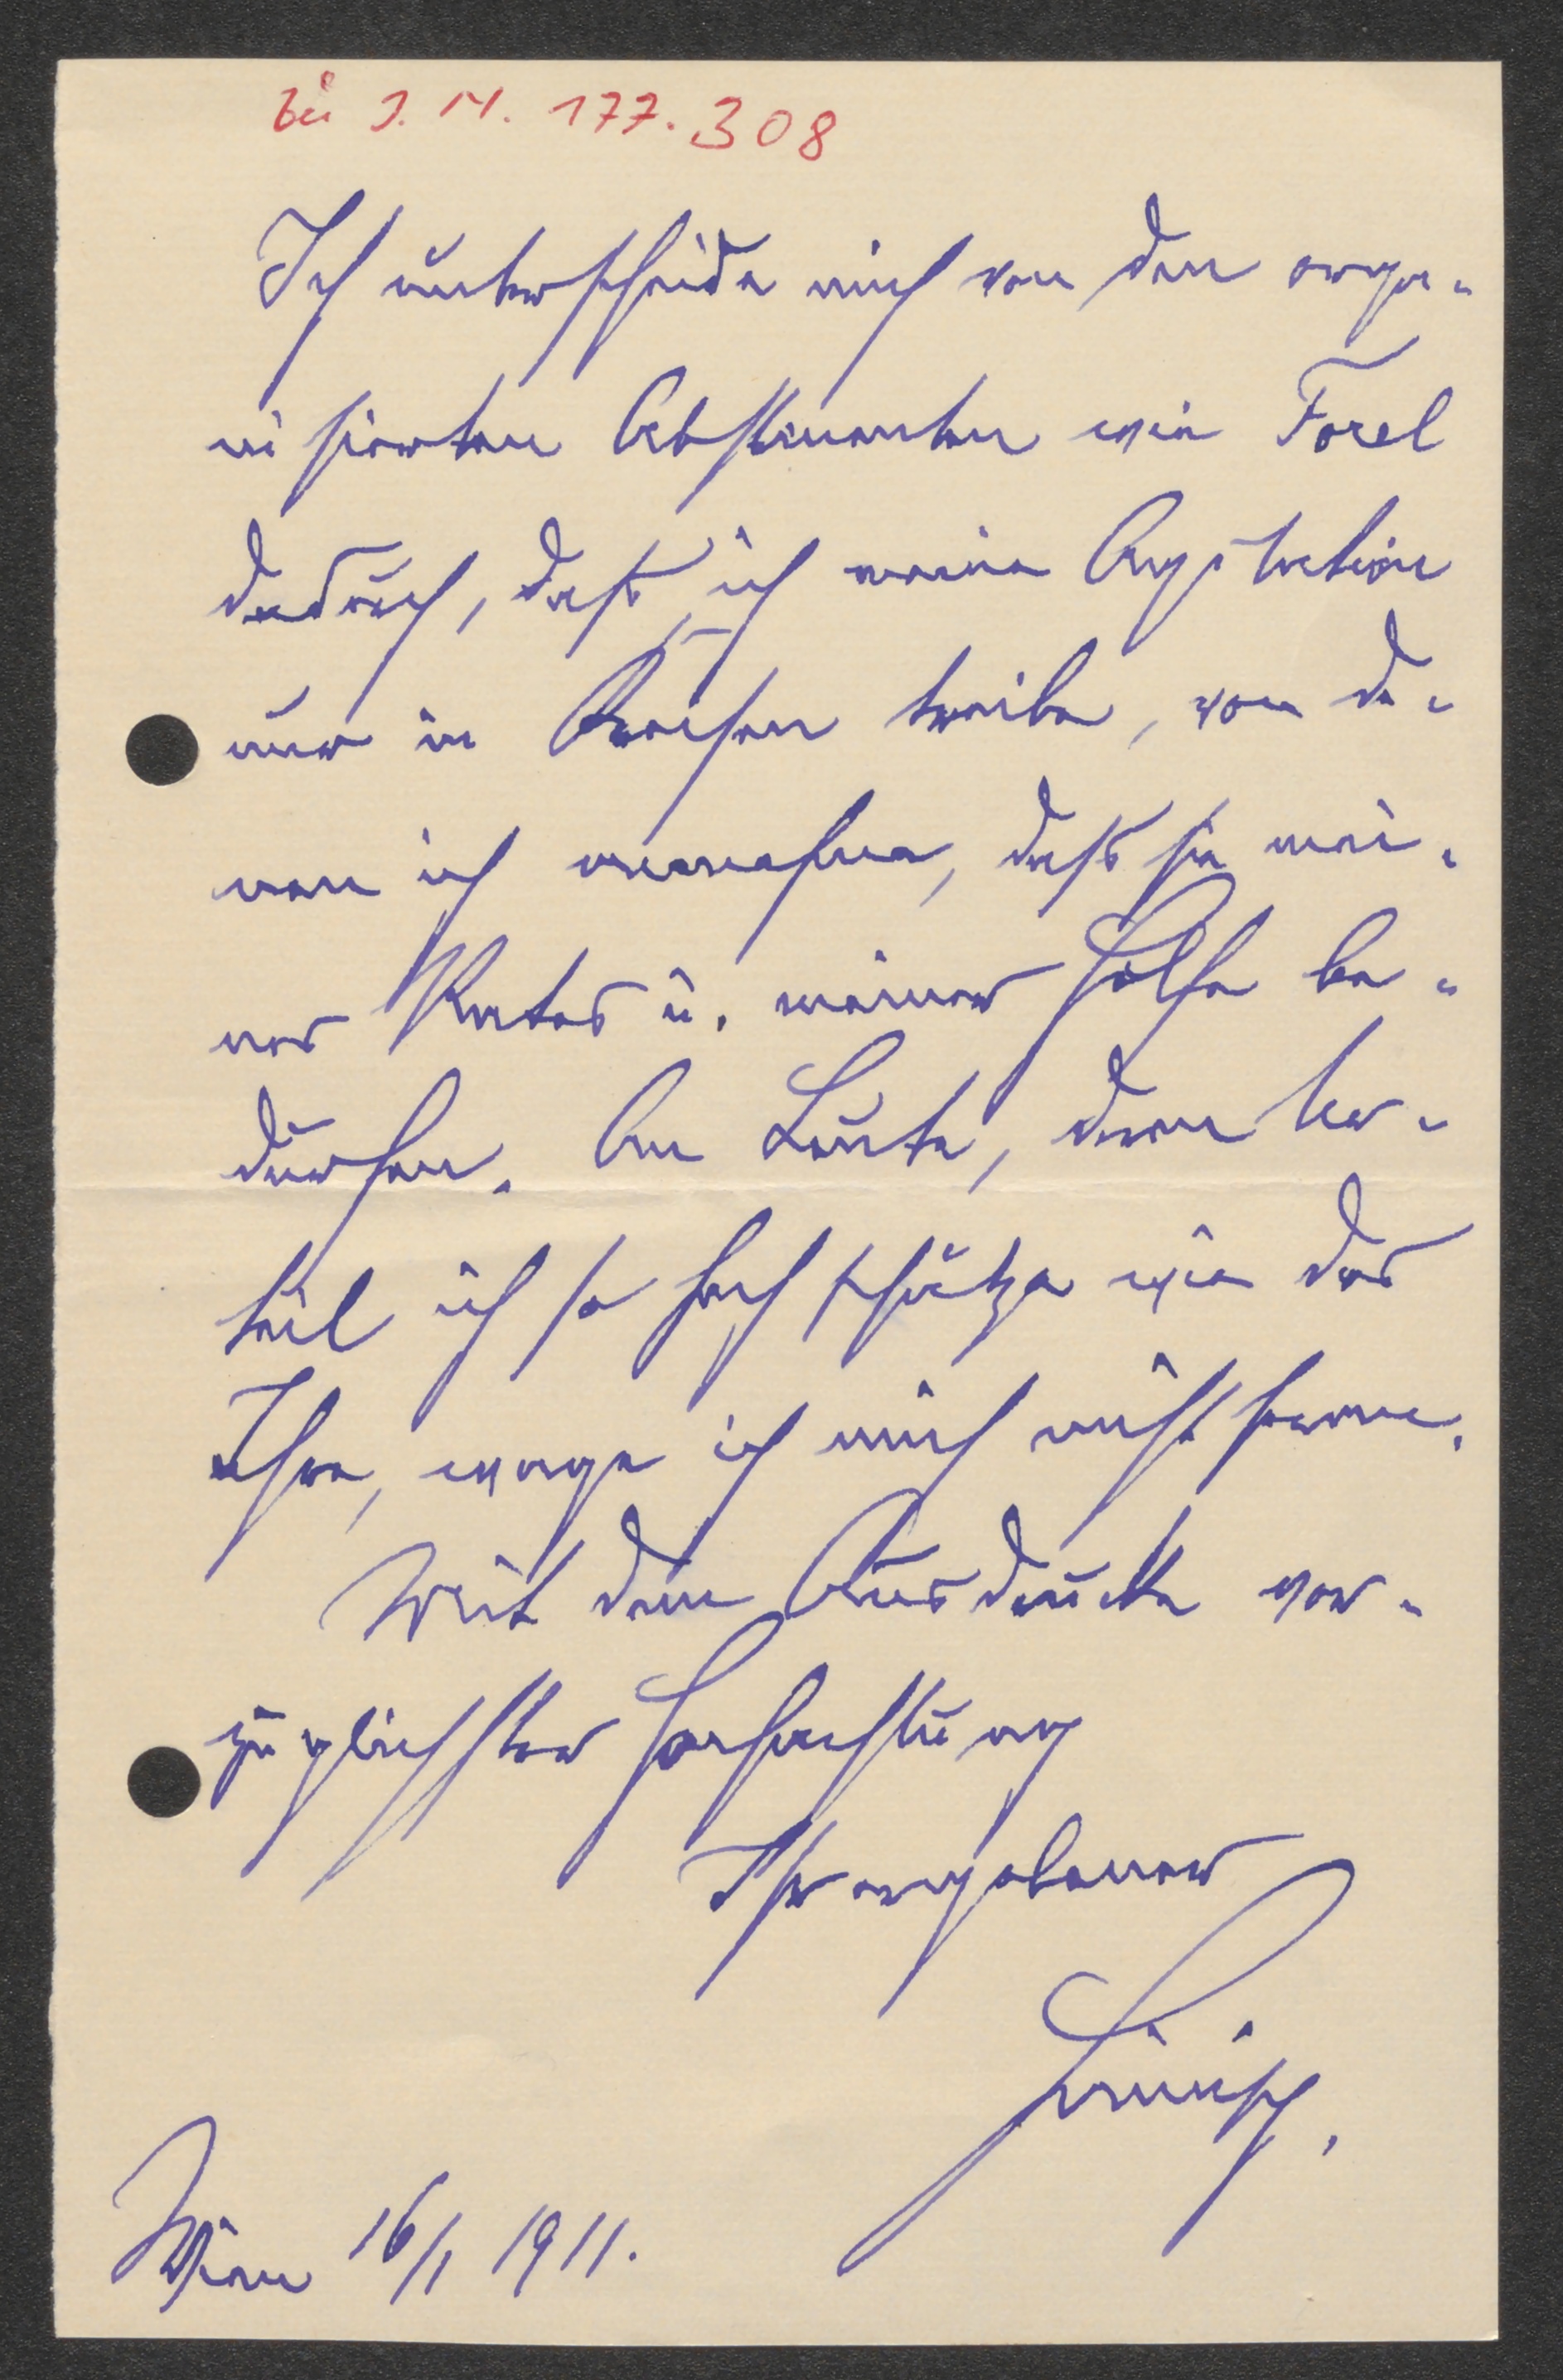 bei J. N. 177.308
Ich unterscheide mich von den orga-
nisierten Abstinenten wie Forel
dadurch, daß ich meine Agitation
nur in Kreisen treibe, von de-
nen ich annehme, daß sie mei-
nes Rates u. meiner Hilfe be-
dürfen. An Leute, deren Ur-
teil ich so hoch schätze wie das
Ihre, wage ich mich nicht heran.
Mit dem Ausdrucke vor-
züglichster Hochachtung
Ihr ergebener
Wien 16/1 1911.